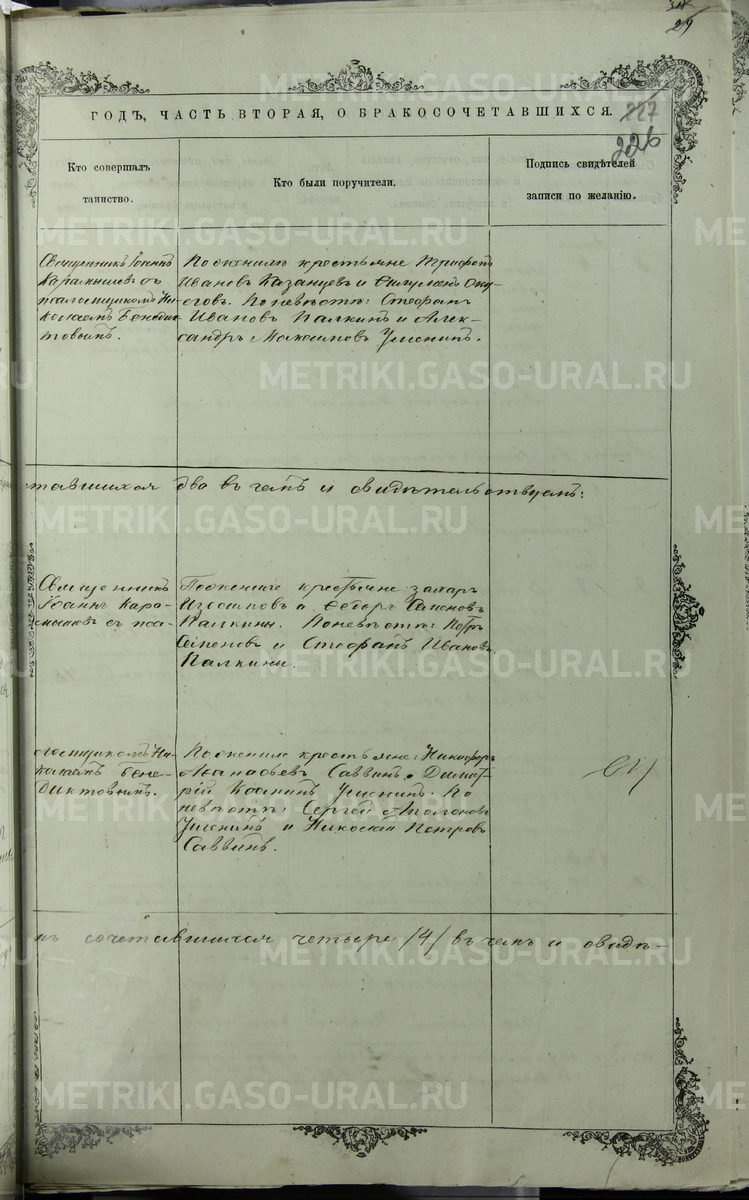 29
ГОДЪ, ЧАСТЬ ВТОРАЯ, О БРАКОСОЧЕТАВШИХСЯ.
227
226
Кто совершалъ
таинство.
Кто были поручители.
Подпись свидѣтелей
записи по желанію.
Священникъ Іоаннъ
Карамышевъ съ
псаломщикомъ Ни-
колаемъ Бенедик-
товымъ.
По женихѣ крестьяне Трифонъ
Ивановъ Казанцевъ и
Поневѣстѣ: Стефанъ
Ивановъ Палкинъ и Алек-
сандръ Максимовъ Уженинъ.
тавшихся два въ чемъ и свидѣтельствуемъ:
Священникъ
Іоаннъ Кара-
мышевъ съ пса-
По женихѣ крестьяне Захаръ
и Ѳедоръ
Палкины. Поневѣстѣ: Петръ
Семеновъ и Стефанъ Ивановъ
Палкины.
ломщикомъ Ни-
колаемъ Бене-
диктовымъ.
По женихѣ крестьяне: Никифоръ
Аѳанасьевъ Саввинъ, Димит-
рій Козминъ Уженинъ. По
невѣстѣ: Сергей
Уженинъ и Николай Петровъ
Саввинъ.
къ сочетавшихся четыре /4/ въ чемъ и свидѣ-
METRIKI.GASO-URAL.RU